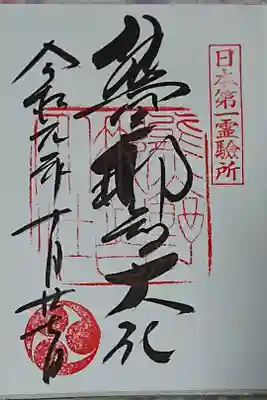 日本第一霊驗所
熊野那智大社
令和元年十月廿七日